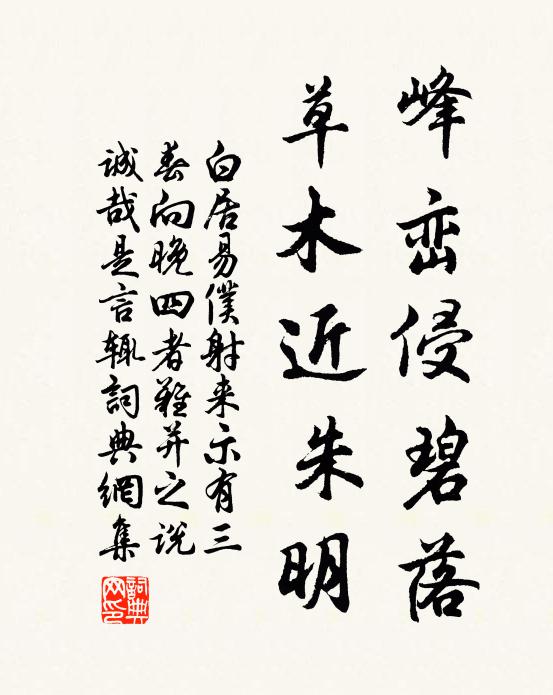 峰峦侵碧落
草木近朱明
白居易僕射来示有三
春向晚四者難并之说
诚哉是言辄詞典網集
詞典網印